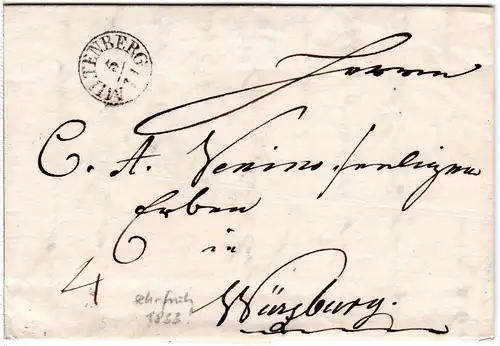 MILTENBERG
Herrn
C. A. Venino seeligen
Erben
in
4
Würzburg.
sehr früh
1833